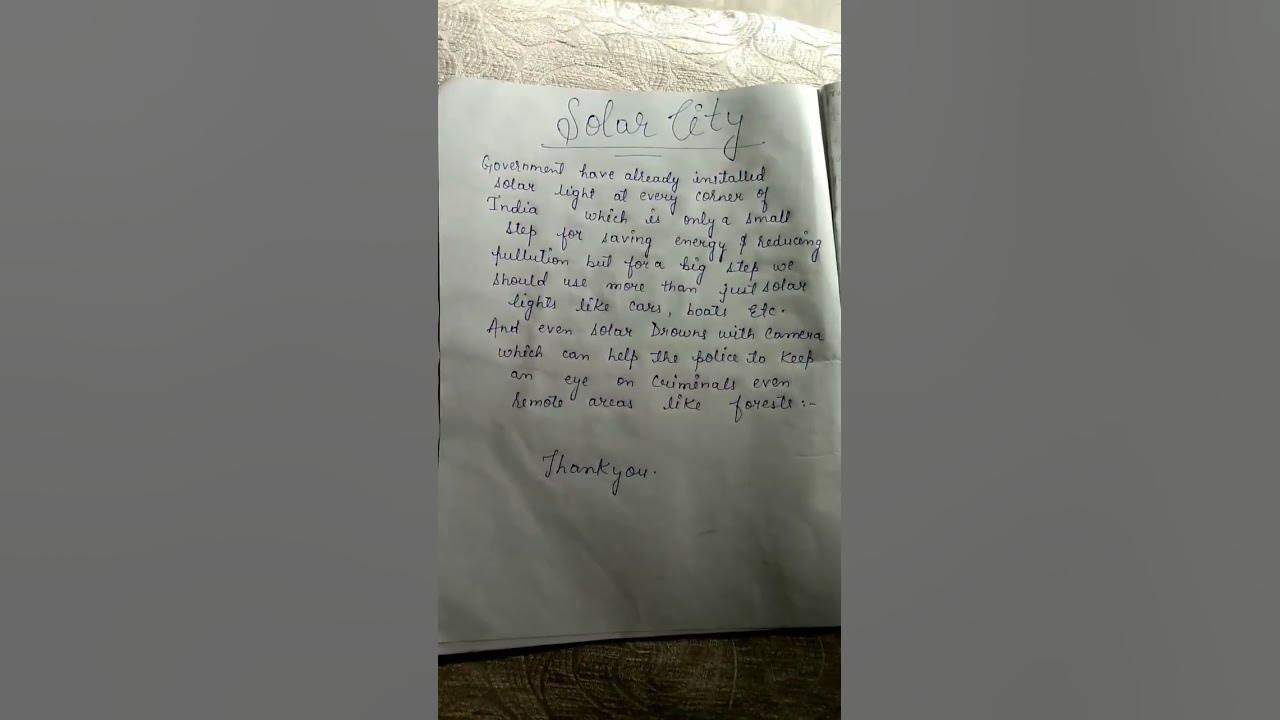 Solar City
Government have already installed
solar light at every corner of
India which is only a small
step for saving energy & reducing
pullution but for a big step we
should use more than just solar
lights like cars, boats Etc.
And even solar Drowns with Camera
which can help the police to keep
an eye on Criminals even
remote areas like forests:-
Thankyou.